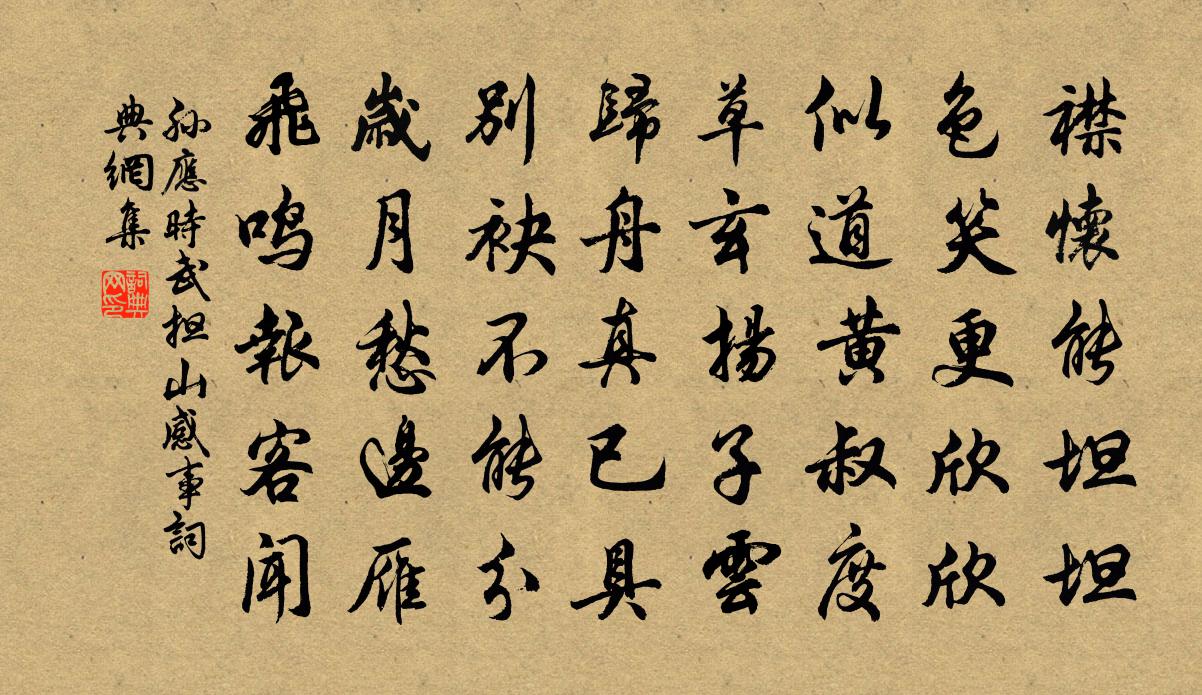 襟懷能坦坦
色笑更欣欣
似道黃叔度
草玄揚子雲
歸舟真已具
別袂不能分
歲月愁邊雁
飛鳴報客聞
孫應時武担山感事詞
典網集
詞典
网印